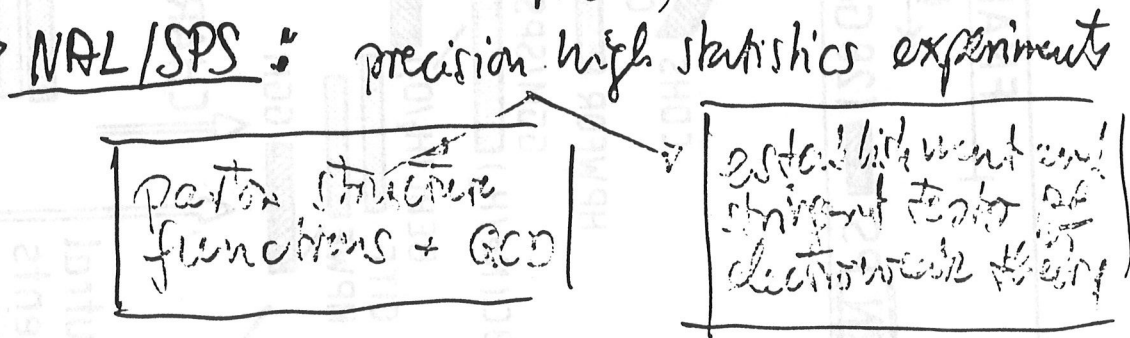 NAL/SPS : precision high statistics experiments
parton structure
functions + QCD
establishment and
stringent tests of
electroweak theory